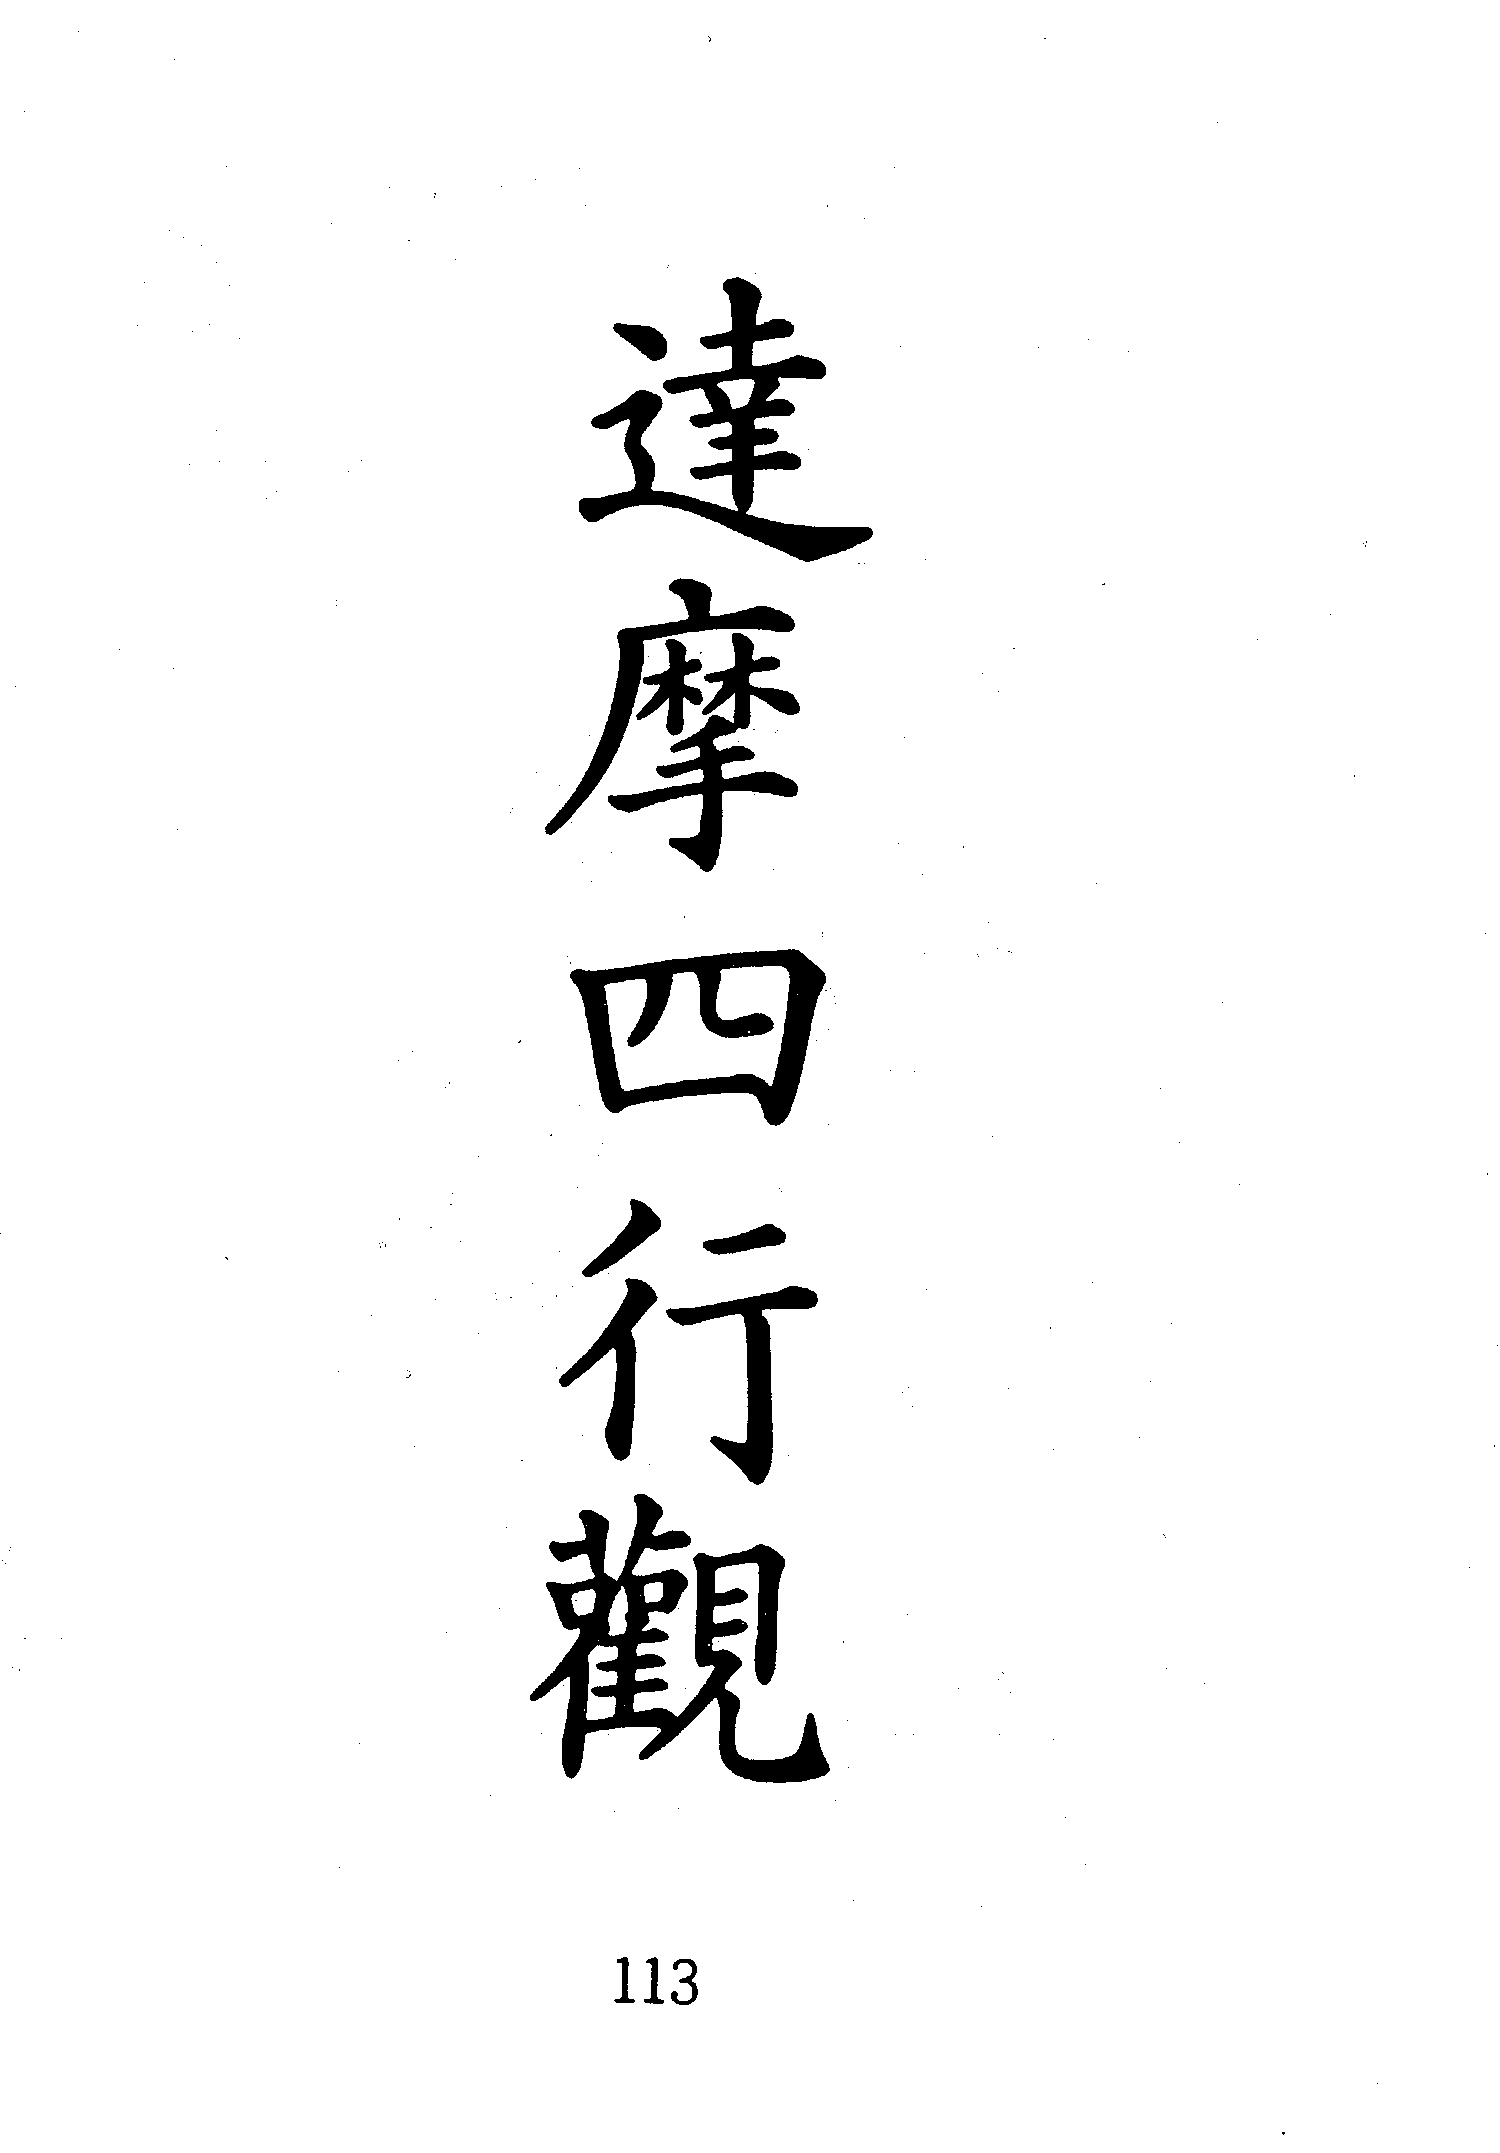 達摩四行觀
113